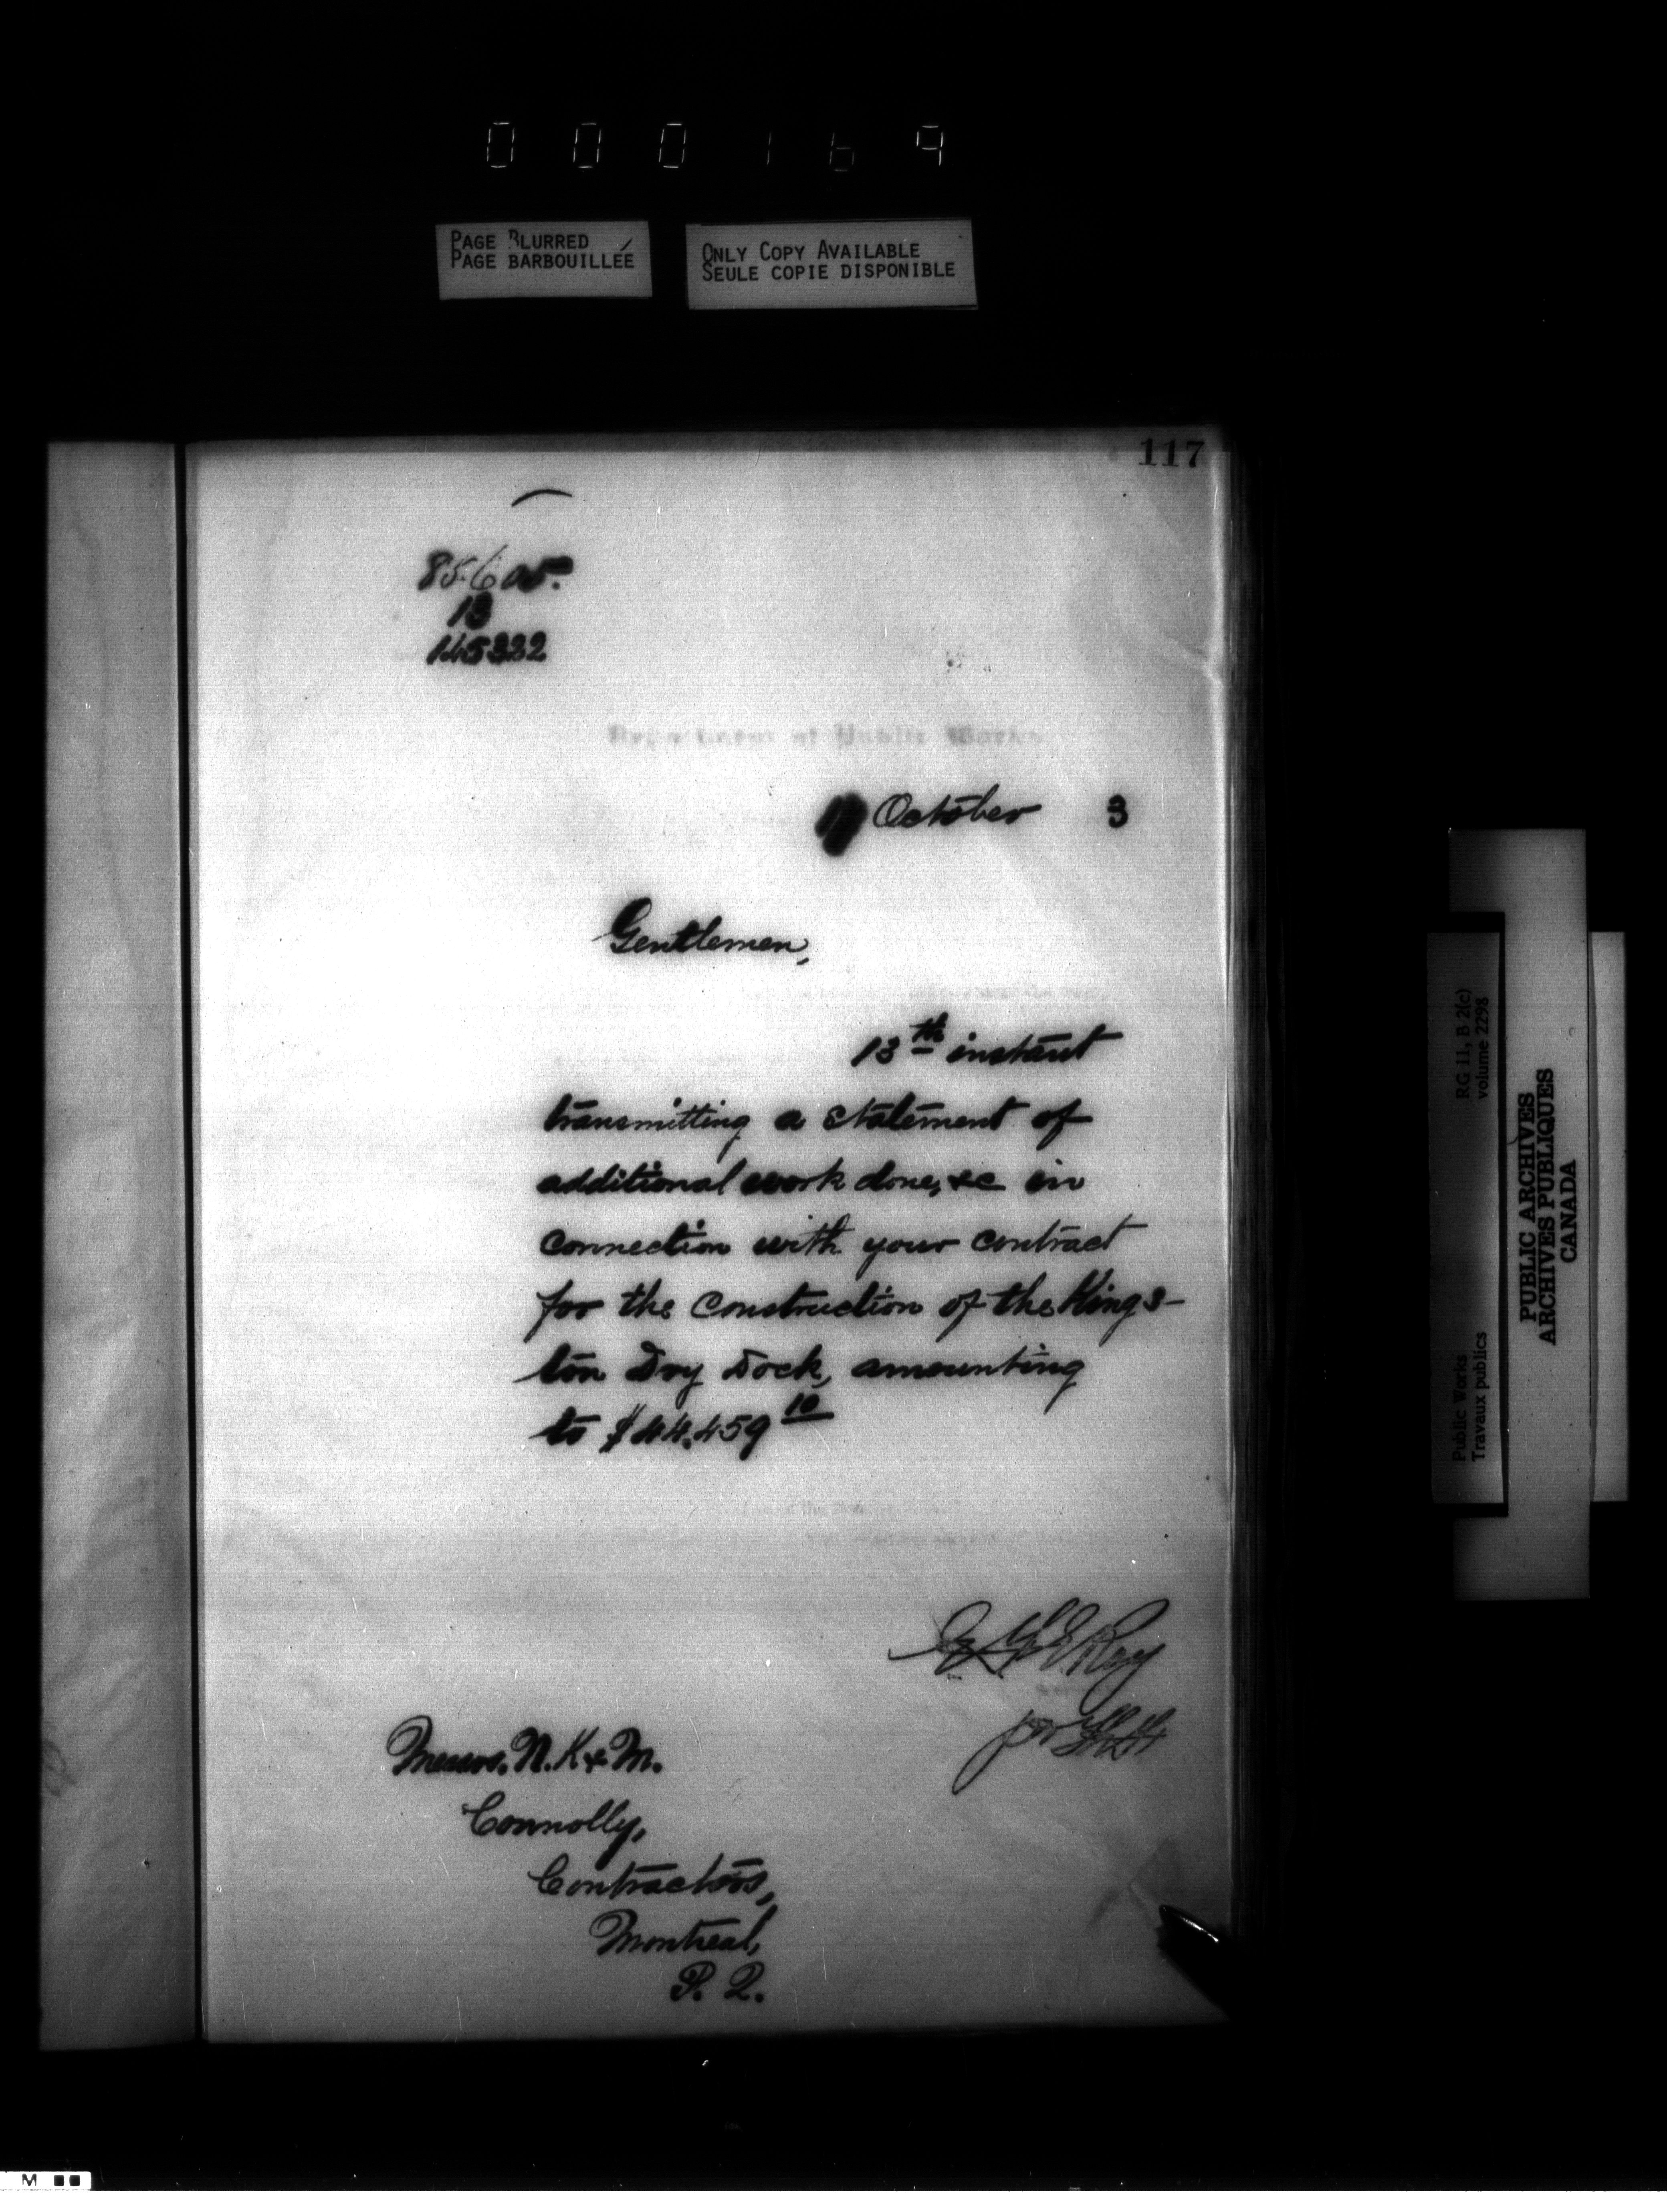 000169
PAGE BLURRED
PAGE BARBOUILLÉE
ONLY COPY AVAILABLE
SEULE COPIE DISPONIBLE
117
85605.
13
145322
Department of Public Works
October 3
Gentlemen,
13th instant
transmitting a statement of
additional work done, &c in
connection with your contract
for the construction of the Kings-
ton Dry Dock, amounting
to $44,459 10
Roy
Messrs. N. K & M.
Connolly,
Contractors,
Montreal,
P. Q.
Public Works RG 11, B 2(c)
Travaux publics volume 2298
PUBLIC ARCHIVES
ARCHIVES PUBLIQUES
CANADA
M